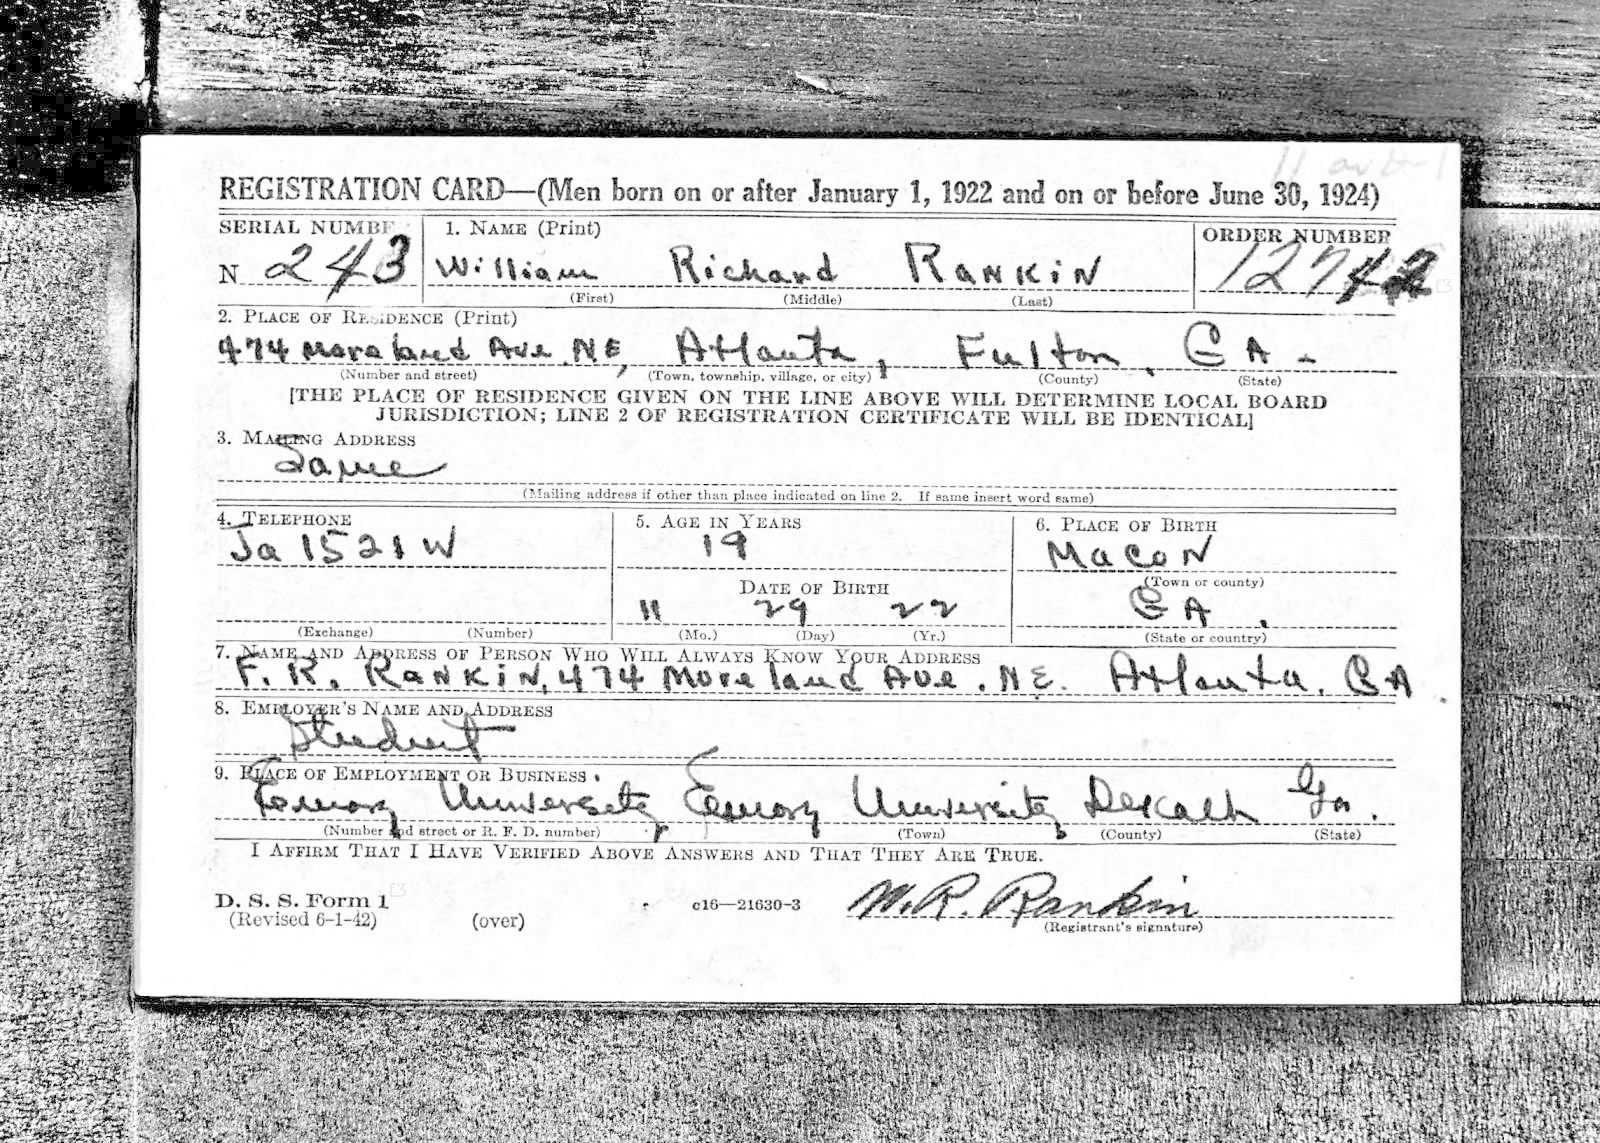 REGISTRATION CARD—(Men born on or after January 1, 1922 and on or before June 30, 1924)
SERIAL NUMBE 1. NAME (Print) ORDER NUMBER
N 243 William Richard RANKIN 12742
(First) (Middle) (Last)
2. PLACE OF RESIDENCE (Print)
474 Moreland Ave NE, Atlanta, Fulton, GA -
(Number and street) (Town, township, village, or city) (County) (State)
[THE PLACE OF RESIDENCE GIVEN ON THE LINE ABOVE WILL DETERMINE LOCAL BOARD
JURISDICTION; LINE 2 OF REGISTRATION CERTIFICATE WILL BE IDENTICAL]
3. MAILING ADDRESS
Same
(Mailing address if other than place indicated on line 2. If same insert word same)
4. TELEPHONE 5. AGE IN YEARS 6. PLACE OF BIRTH
Ja 1521 W 19 MacoN
(Town or county)
DATE OF BIRTH
11 29 22 GA.
(Exchange) (Number) (Mo.) (Day) (Yr.) (State or country)
7. NAME AND ADDRESS OF PERSON WHO WILL ALWAYS KNOW YOUR ADDRESS
F. R. RANKIN, 474 Moreland Ave. NE. Atlanta, GA
8. EMPLOYER'S NAME AND ADDRESS
Student
9. PLACE OF EMPLOYMENT OR BUSINESS
Emory University, Emory University Dekalb Ga.
(Number and street or R. F. D. number) (Town) (County) (State)
I AFFIRM THAT I HAVE VERIFIED ABOVE ANSWERS AND THAT THEY ARE TRUE.
D. S. S. Form 1
(Revised 6-1-42) (over) c16—21630-3 W. R. Rankin
(Registrant's signature)